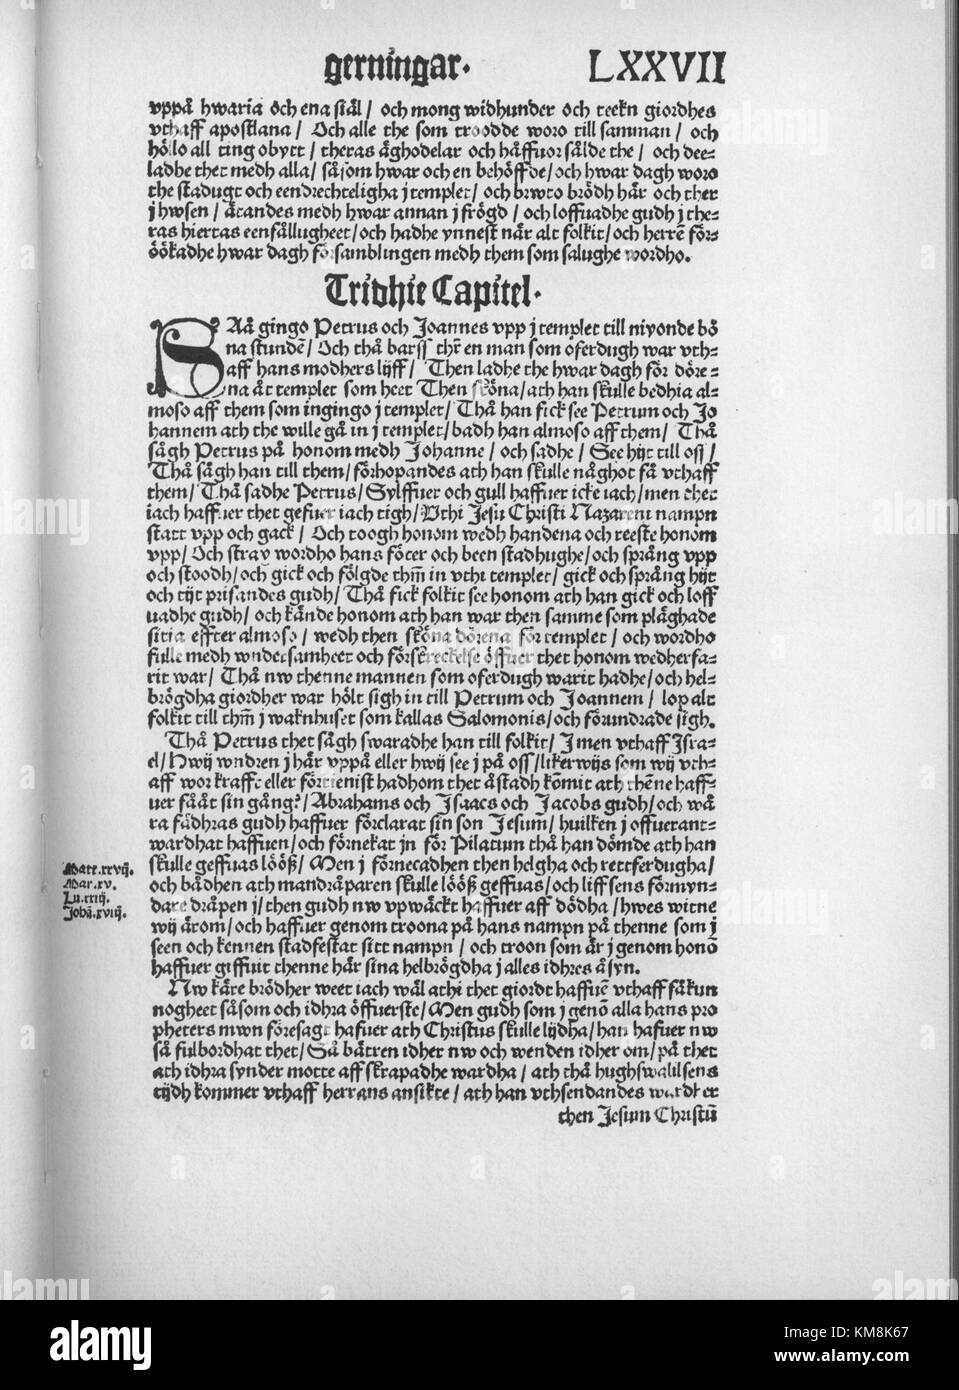 gerningar. LXXVII
vppå hwaria och ena siäl / och mong widhunder och teekn giordhes
vthaff apostlana / Och alle the som troodde woro till samman / och
höllo all ting obytt / theras äghodelar och häffuor sålde the / och dee-
ladhe thet medh alla / såsom hwar och en behöffde / och hwar dagh woro
the stadugt och eendrechteligha j templet / och brwto brödh här och ther
j hwsen / ätandes medh hwar annan j frögd / och loffuadhe gudh j the-
ras hiertas eenfållugheet / och hadhe ynnest när alt folkit / och herrē för-
öökadhe hwar dagh församblingen medh them som salughe wordho.
Tridhie Capitel.
SAå gingo Petrus och Joannes vpp j templet till niyonde bö
na stundē / Och thå barss thr̄ en man som oferdugh war vth-
aff hans modhers lijff / Then ladhe the hwar dagh för döre-
na åt templet som heet Then sköna / ath han skulle bedhia al-
moso aff them som ingingo j templet / Thå han fick see Petrum och Jo
hannem ath the wille gå in j templet / badh han almoso aff them / Thå
sågh Petrus på honom medh Johanne / och sadhe / See hijt till oss /
Thå sågh han till them / förhopandes ath han skulle någhot få vthaff
them / Thå sadhe Petrus / Sylffuer och gull haffuer icke iach / men thet
iach haffuer thet gefuer iach tigh / Vthi Jesu Christi Nazareni nampn
statt vpp och gack / Och toogh honom wedh handena och reeste honom
vpp / Och strax wordho hans föter och been stadhughe / och språng vpp
och stoodh / och gick och fölgde thm̄ in vthi templet / gick och språng hijt
och tijt prisandes gudh / Thå fick folkit see honom ath han gick och loff
uadhe gudh / och kände honom ath han war then samme som pläghade
sitia effter almoso / wedh then sköna dörena för templet / och wordho
fulle medh wndersamheet och förskreckelse öffuer thet honom wedherfa-
rit war / Thå nw thenne mannen som oferdugh warit hadhe / och hel-
brögdha giordher war hölt sigh in till Petrum och Joannem / lop alt
folkit till thm̄ j waknhuset som kallas Salomonis / och förundrade sigh.
Thå Petrus thet sågh swaradhe han till folkit / J men vthaff Isra-
el / Hwij wndren j här vppå eller hwij see j på oss / likerwijs som wij vth-
aff wor krafft eller förtienist hadhom thet åstadh kōmit ath thēne haff-
uer fåät sin gång? / Abrahams och Isaacs och Jacobs gudh / och wå
ra fädhras gudh haffuer förclarat sin son Jesum / huilken j offuerant-
wardhat haffuen / och förnekat jn för Pilatum thå han dömde ath han
skulle geffuas lööß / Men j förnecadhen then helgha och rettferdugha /
och bådhen ath mandråparen skulle lööß geffuas / och liffsens förmyn-
dare dråpen j / then gudh nw vpwäckt haffuer aff dödha / hwes witne
wij ärom / och haffuer genom troona på hans nampn på thenne som j
seen och kennen stadfestat sitt nampn / och troon som är j genom honō
haffuer giffuit thenne här sina helbrögdha j alles idhres åsyn.
Matt. xxvij.
Mar. xv.
Lu. xxiij.
Johā. xviij.
Nw käre brödher weet iach wäl athi thet giordt haffuē vthaff fåkun
nogheet såsom och idhra öffuerste / Men gudh som j genō alla hans pro
pheters mwn föresagt hafuer ath Christus skulle lijdha / han hafuer nw
så fulbordhat thet / Så bätren idher nw och wenden idher om / på thet
ath idhra synder motte aff skrapadhe wardha / ath thå hughswalilsens
tijdh kommer vthaff herrans ansikte / ath han vthsendandes wardher
then Jesum Christū
alamy
KM8K67
www.alamy.com